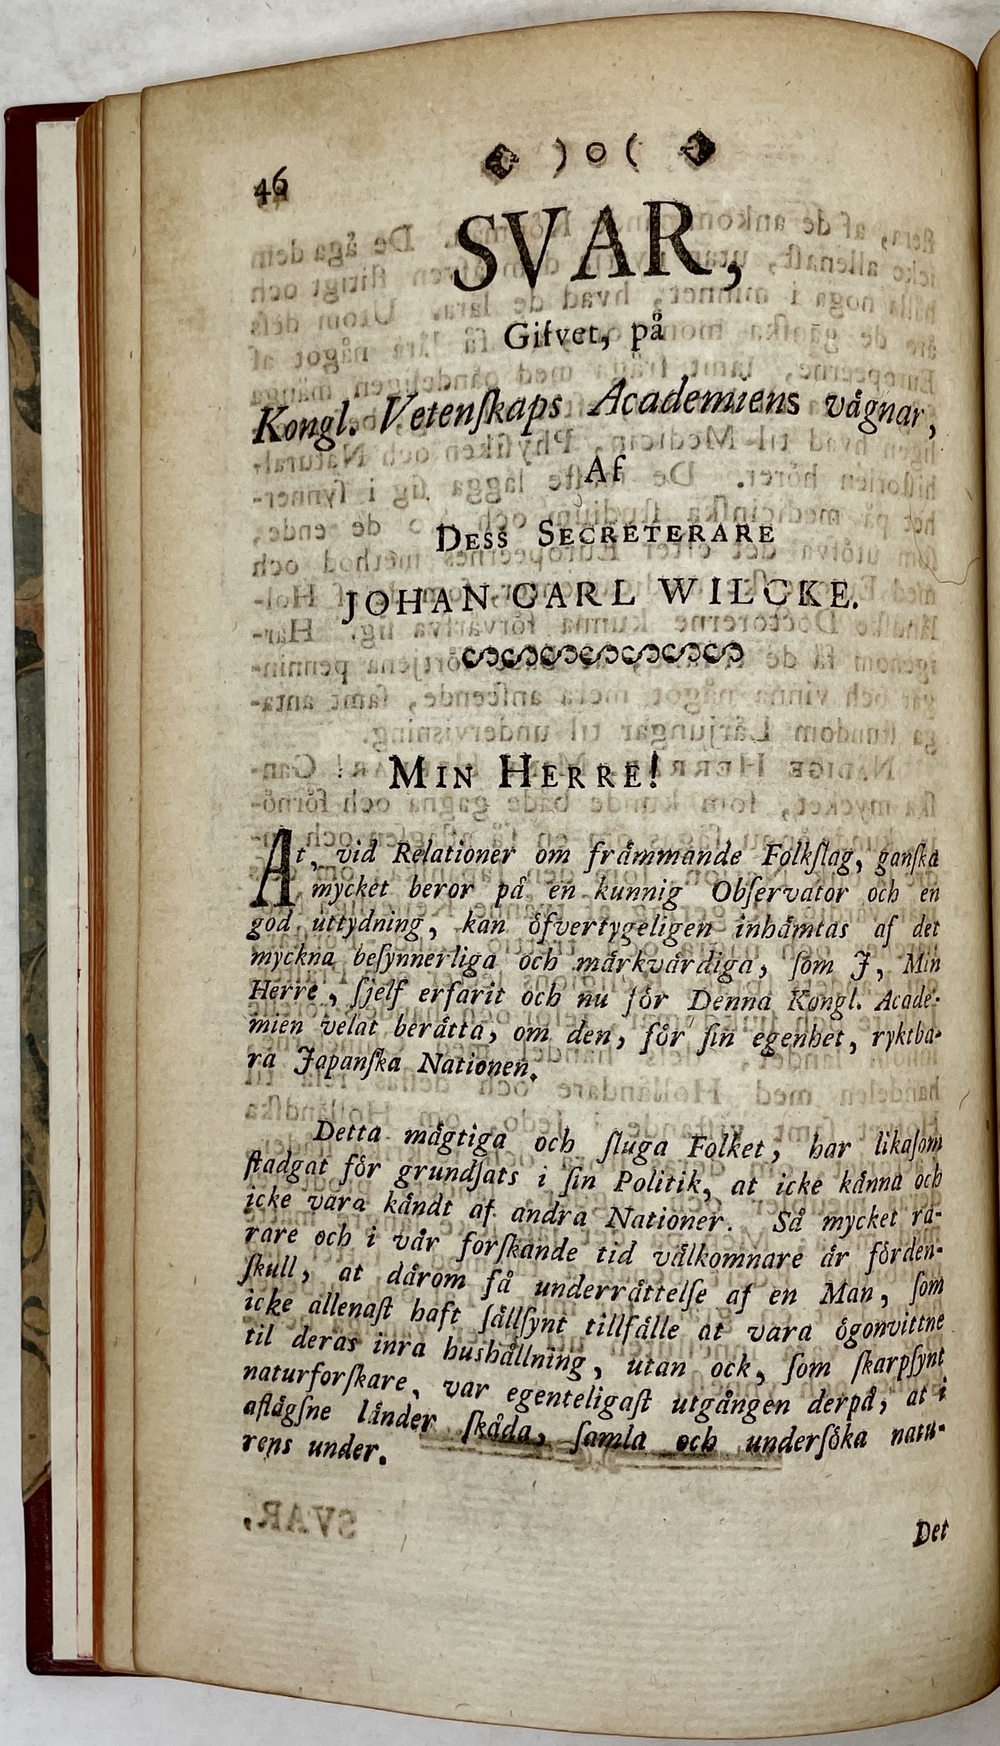 46
) o (
SVAR,
Gifvet, på
Kongl. Vetenſkaps Academiens vågnar,
Af
DESS SECRETERARE
JOHAN CARL WILCKE.
MIN HERRE!
At, vid Relationer om främmande Folkſlag, ganſka
mycket beror på en kunnig Obſervator och en
god uttydning, kan öfvertygeligen inhåmtas af det
myckna beſynnerliga och mårkvårdiga, ſom J, Min
Herre, ſjelf erfarit och nu för Denna Kongl. Acade-
mien velat beråtta, om den, för ſin egenhet, ryktba-
ra Japanſka Nationen.
Detta mågtiga och ſluga Folket, har likaſom
ſtadgat för grundſats i ſin Politik, at icke kånna och
icke vara kåndt af andra Nationer. Så mycket ra-
rare och i vår forſkande tid vålkomnare år förden-
ſkull, at dårom få underråttelſe af en Man, ſom
icke allenaſt haft ſållſynt tillfålle at vara ögonvittne
til deras inra hushållning, utan ock, ſom ſkarpſynt
naturforſkare, var egenteligaſt utgången derpå, at i
aflågſne lånder ſkåda, ſamla och underſöka natu-
rens under.
SVAR,
Det